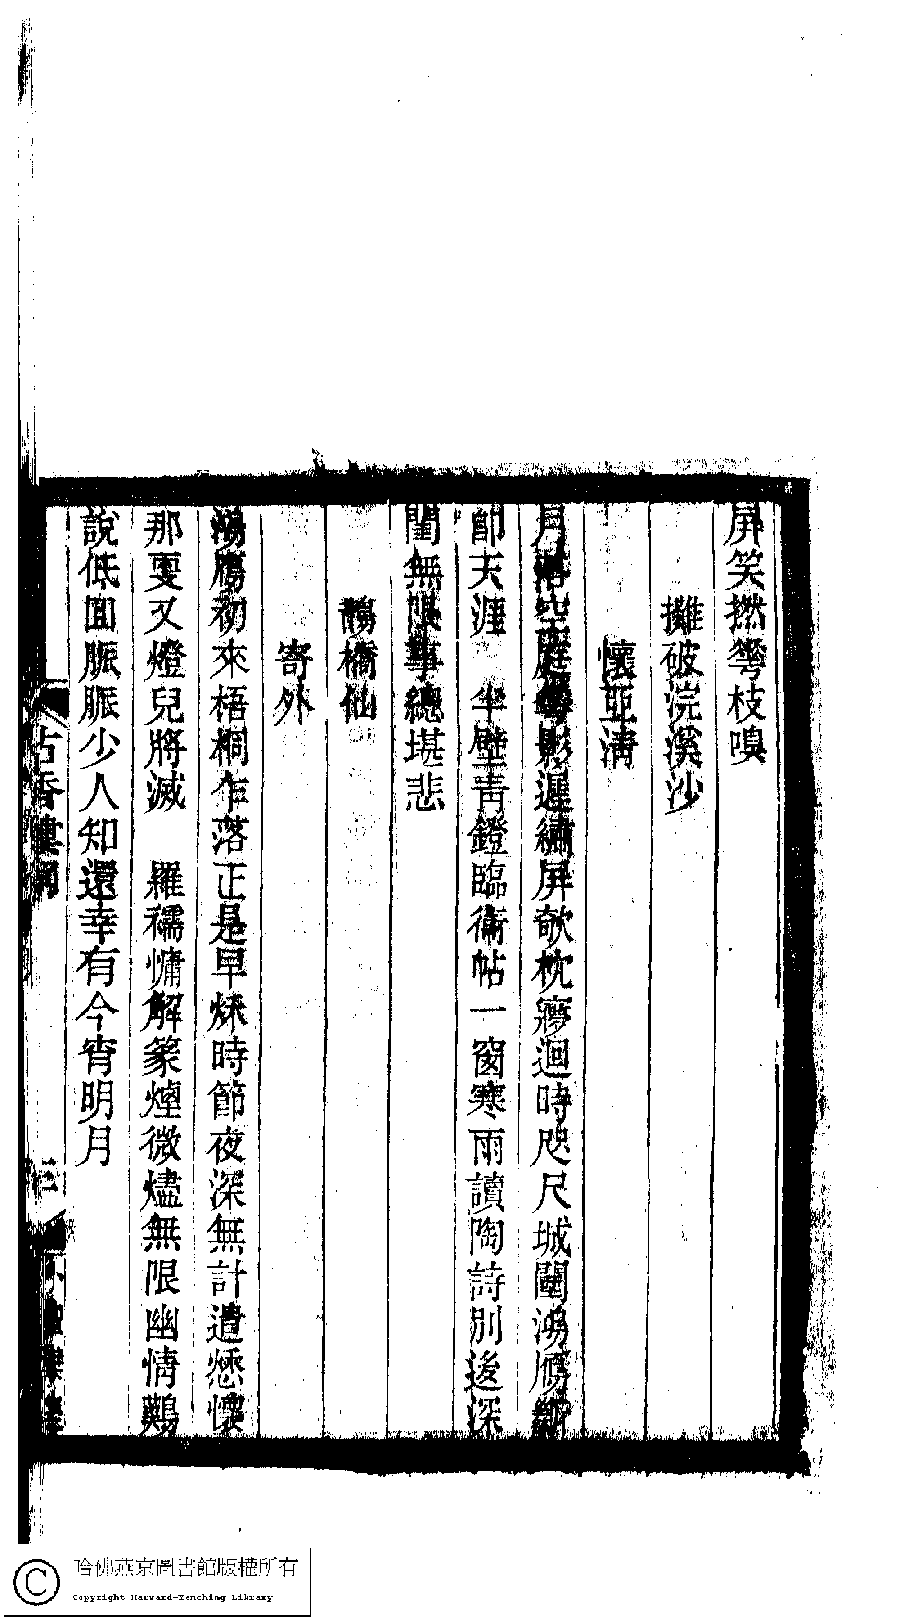 屏笑撚蕚枝嗅
攤破浣溪沙
懷亞清
月落空庭蕚影遲繡屏欹枕寱迴時咫尺城闉鴻鴈斷
卽天涯　半壁靑鐙臨衛帖一窗寒雨讀陶詩別後深
閨無限事總堪悲
鵲橋仙
寄外
鴻鴈初來梧桐乍落正是早秌時節夜深無計遣愁懷
那更又燈兒將滅　羅襦慵解篆煙微燼無限幽情難
說低回脈脈少人知還幸有今宵明月
古香樓詞
三